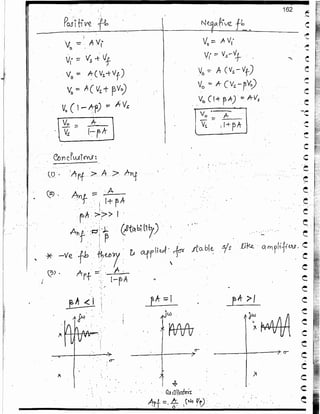 162
Positive fb
V₀ = A Vᵢ
Vᵢ = Vₛ + V_f
V₀ = A (Vₛ + V_f)
V₀ = A (Vₛ + βV₀)
V₀ (1 − Aβ) = A Vₛ
V₀/Vₛ = A/(1 − βA)
Negative fb
V₀ = A Vᵢ
Vᵢ = Vₛ − V_f
V₀ = A (Vₛ − V_f)
V₀ = A (Vₛ − βV₀)
V₀ (1 + βA) = A Vₛ
V₀/Vₛ = A/(1 + βA)
Conclusions:
(1). A_pf > A > A_nf
(2). A_nf = A/(1 + βA)
βA >>> 1
A_nf ≈ 1/β (Stability)
* −ve fb theory is applied for stable s/s like amplifiers.
(3). A_pf = A/(1 − βA)
βA < 1
βA = 1
βA > 1
jω
jω
jω
σ
σ
σ
Oscillators
A_pf = A/0 (No Vᵢ)